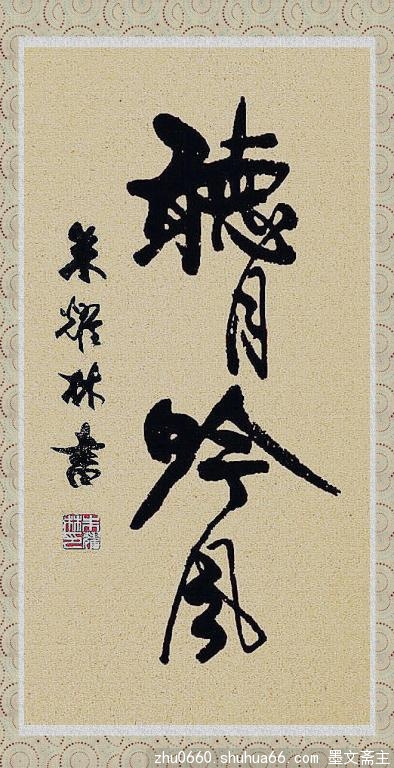 聽月吟風
朱耀林書
zhu0660.shuhua66.com 墨文斋主